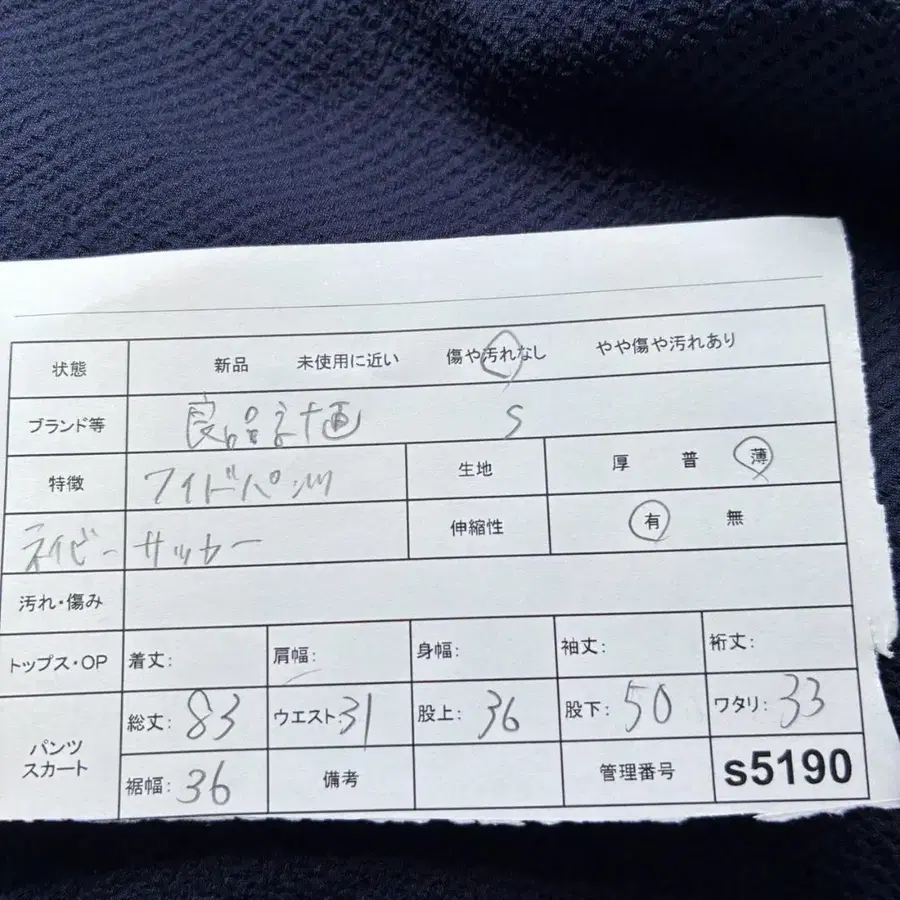 状態 新品 未使用に近い 傷や汚れなし やや傷や汚れあり
ブランド等 良品計画 S
特徴 ワイドパンツ 生地 厚 普 薄
ネイビー サッカー 伸縮性 有 無
汚れ・傷み
トップス・OP 着丈: 肩幅: 身幅: 袖丈: 裄丈:
パンツ スカート 総丈: 83 ウエスト: 31 股上: 36 股下: 50 ワタリ: 33
裾幅: 36 備考 管理番号 s5190